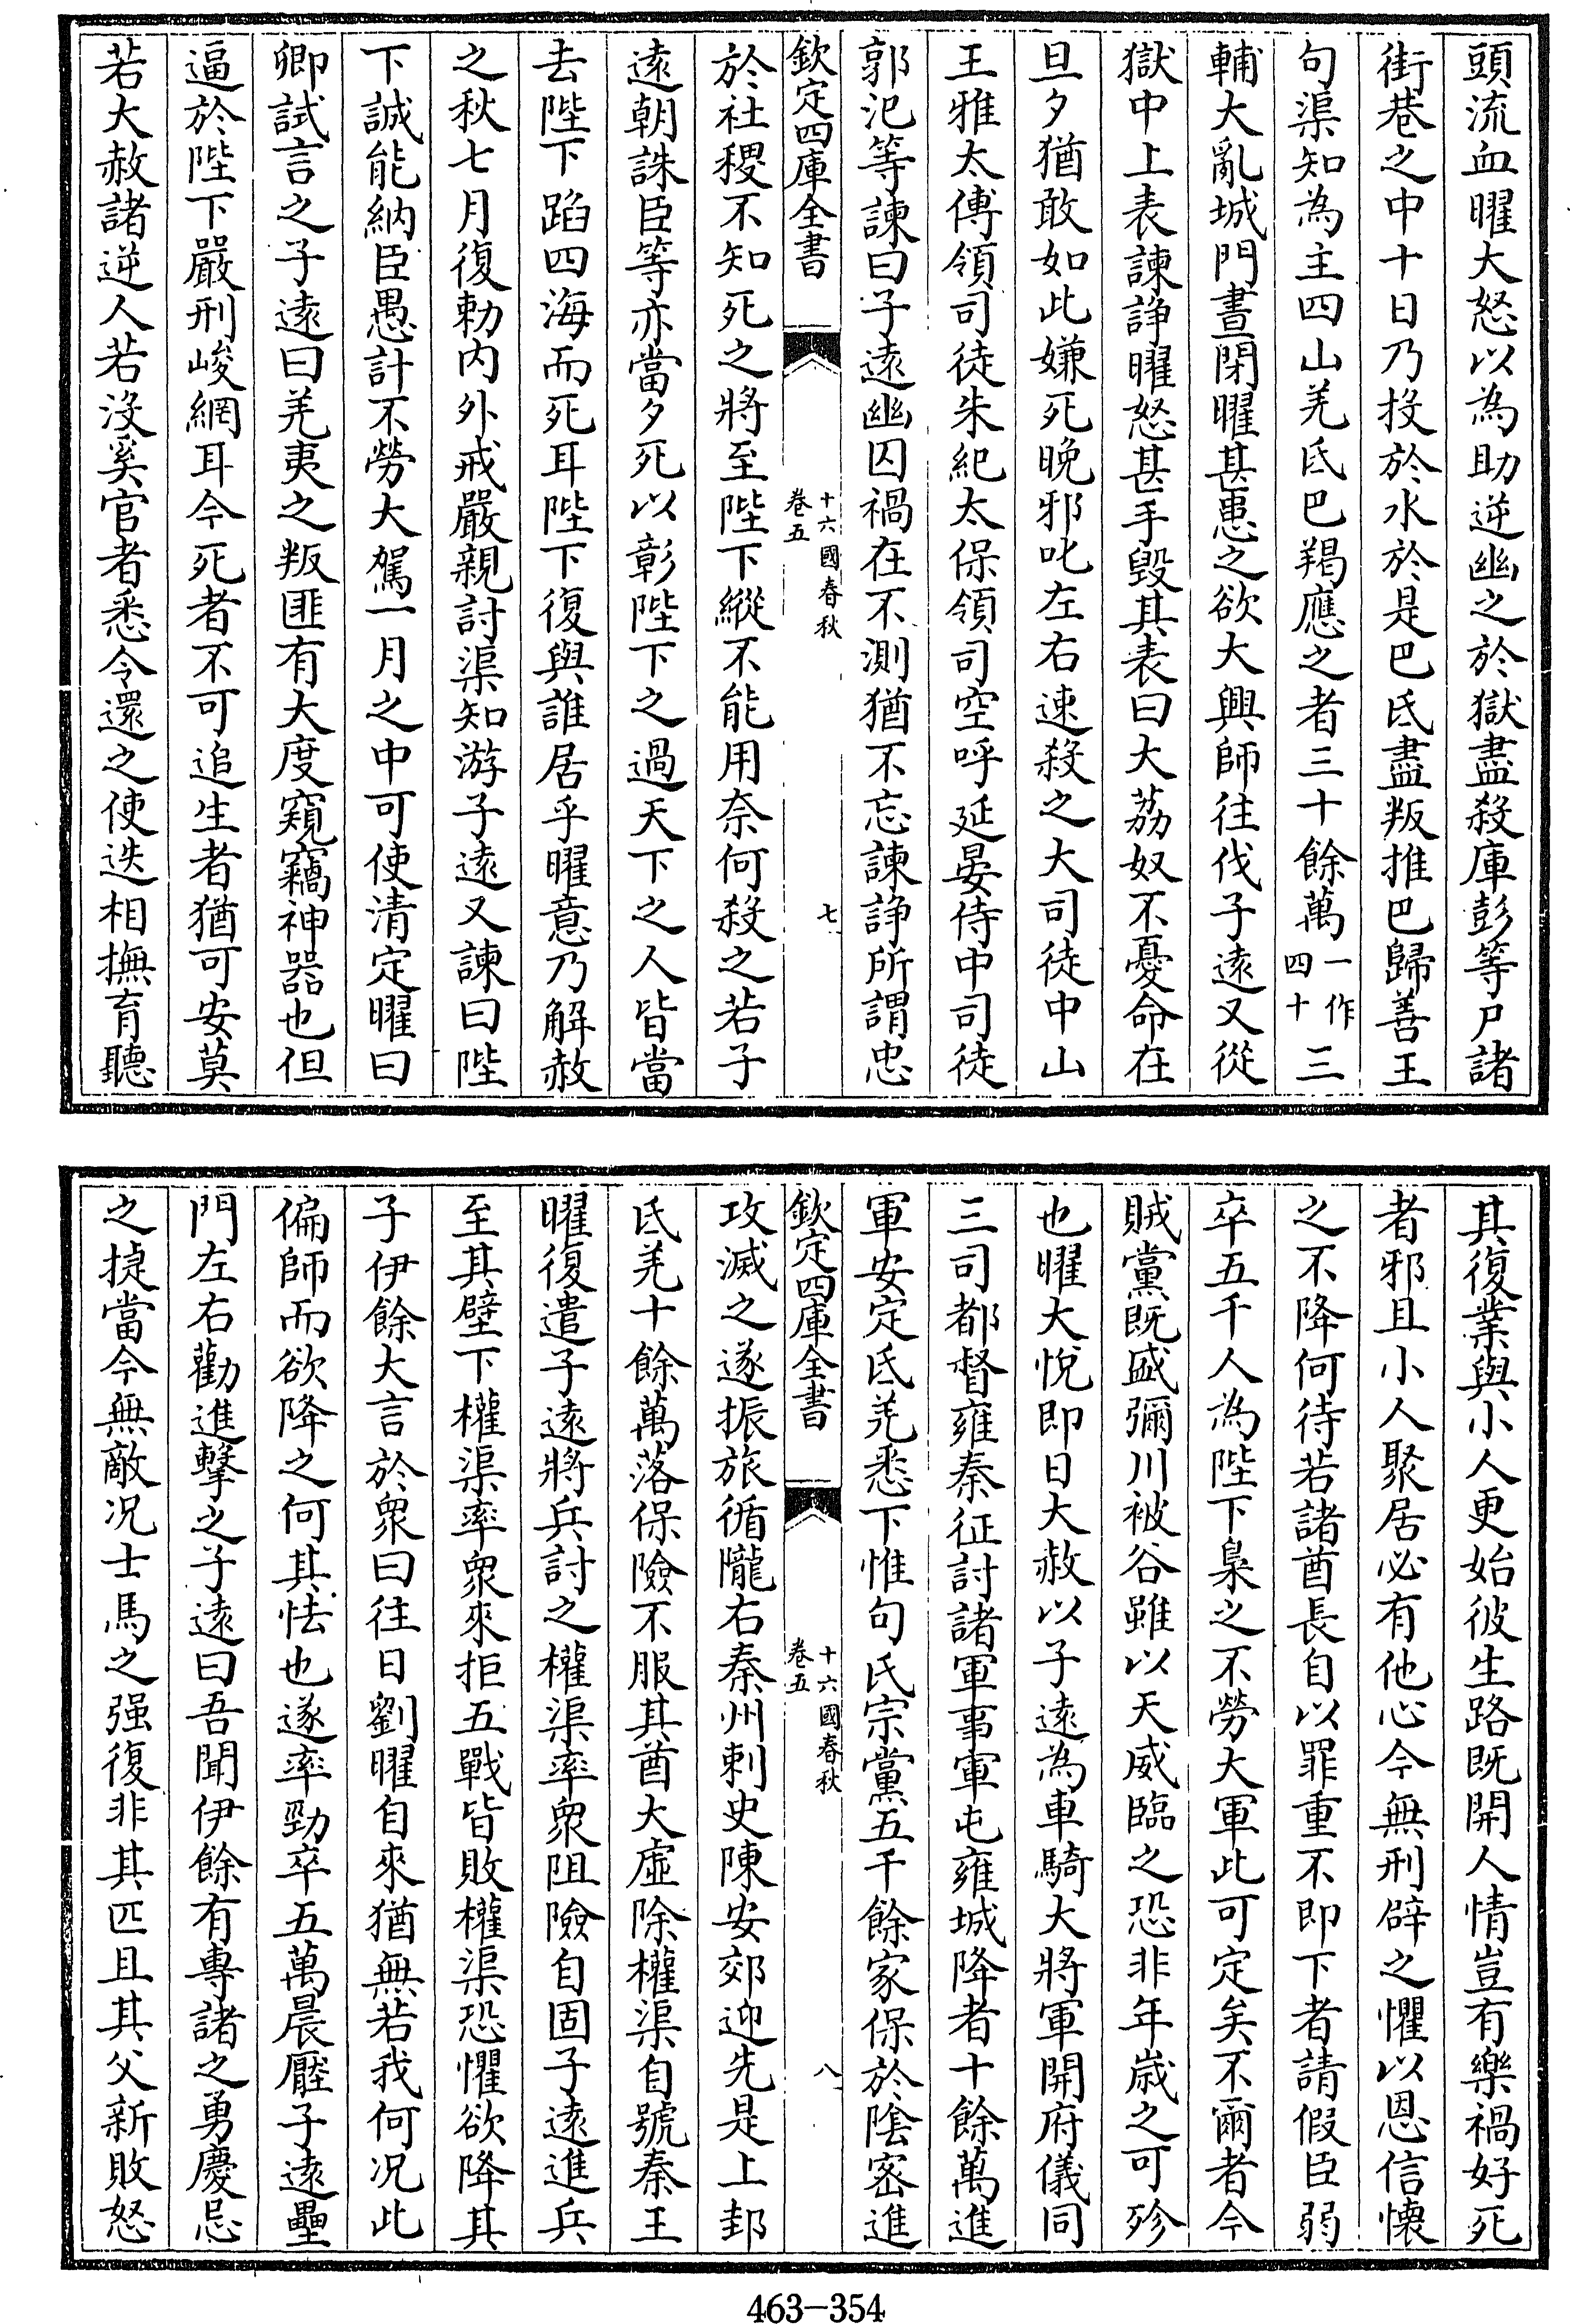 頭流血曜大怒以為助逆幽之於獄盡殺庫彭等尸諸
街巷之中十日乃投於水於是巴氐盡叛推巴歸善王
句渠知為主四山羌氐巴羯應之者三十餘萬一作四十三
輔大亂城門晝閉曜甚患之欲大興師往伐子遠又從
獄中上表諫諍曜怒甚手毀其表曰大荔奴不憂命在
旦夕猶敢如此嫌死晚邪叱左右速殺之大司徒中山
王雅太傅領司徒朱紀太保領司空呼延晏侍中司徒
郭汜等諫曰子遠幽囚禍在不測猶不忘諫諍所謂忠
欽定四庫全書 十六國春秋 卷五 七
於社稷不知死之將至陛下縱不能用奈何殺之若子
遠朝誅臣等亦當夕死以彰陛下之過天下之人皆當
去陛下蹈四海而死耳陛下復與誰居乎曜意乃解赦
之秋七月復勅内外戒嚴親討渠知游子遠又諫曰陛
下誠能納臣愚計不勞大駕一月之中可使清定曜曰
卿試言之子遠曰羌夷之叛匪有大度窺竊神器也但
逼於陛下嚴刑峻網耳今死者不可追生者猶可安莫
若大赦諸逆人若沒奚官者悉令還之使迭相撫育聽
其復業與小人更始彼生路既開人情豈有樂禍好死
者邪且小人聚居必有他心今無刑辟之懼以恩信懷
之不降何待若諸酋長自以罪重不即下者請假臣弱
卒五千人為陛下梟之不勞大軍此可定矣不爾者今
賊黨既盛彌川被谷雖以天威臨之恐非年歲之可殄
也曜大悅即日大赦以子遠為車騎大將軍開府儀同
三司都督雍秦征討諸軍事軍屯雍城降者十餘萬進
軍安定氐羌悉下惟句氏宗黨五千餘家保於陰密進
欽定四庫全書 十六國春秋 卷五 八
攻滅之遂振旅循隴右秦州刺史陳安郊迎先是上邽
氐羌十餘萬落保險不服其酋大虛除權渠自號秦王
曜復遣子遠將兵討之權渠率眾阻險自固子遠進兵
至其壁下權渠率眾來拒五戰皆敗權渠恐懼欲降其
子伊餘大言於眾曰往日劉曜自來猶無若我何況此
偏師而欲降之何其怯也遂率勁卒五萬晨壓子遠壘
門左右勸進擊之子遠曰吾聞伊餘有專諸之勇慶忌
之捷當今無敵况士馬之强復非其匹且其父新敗怒
463-354